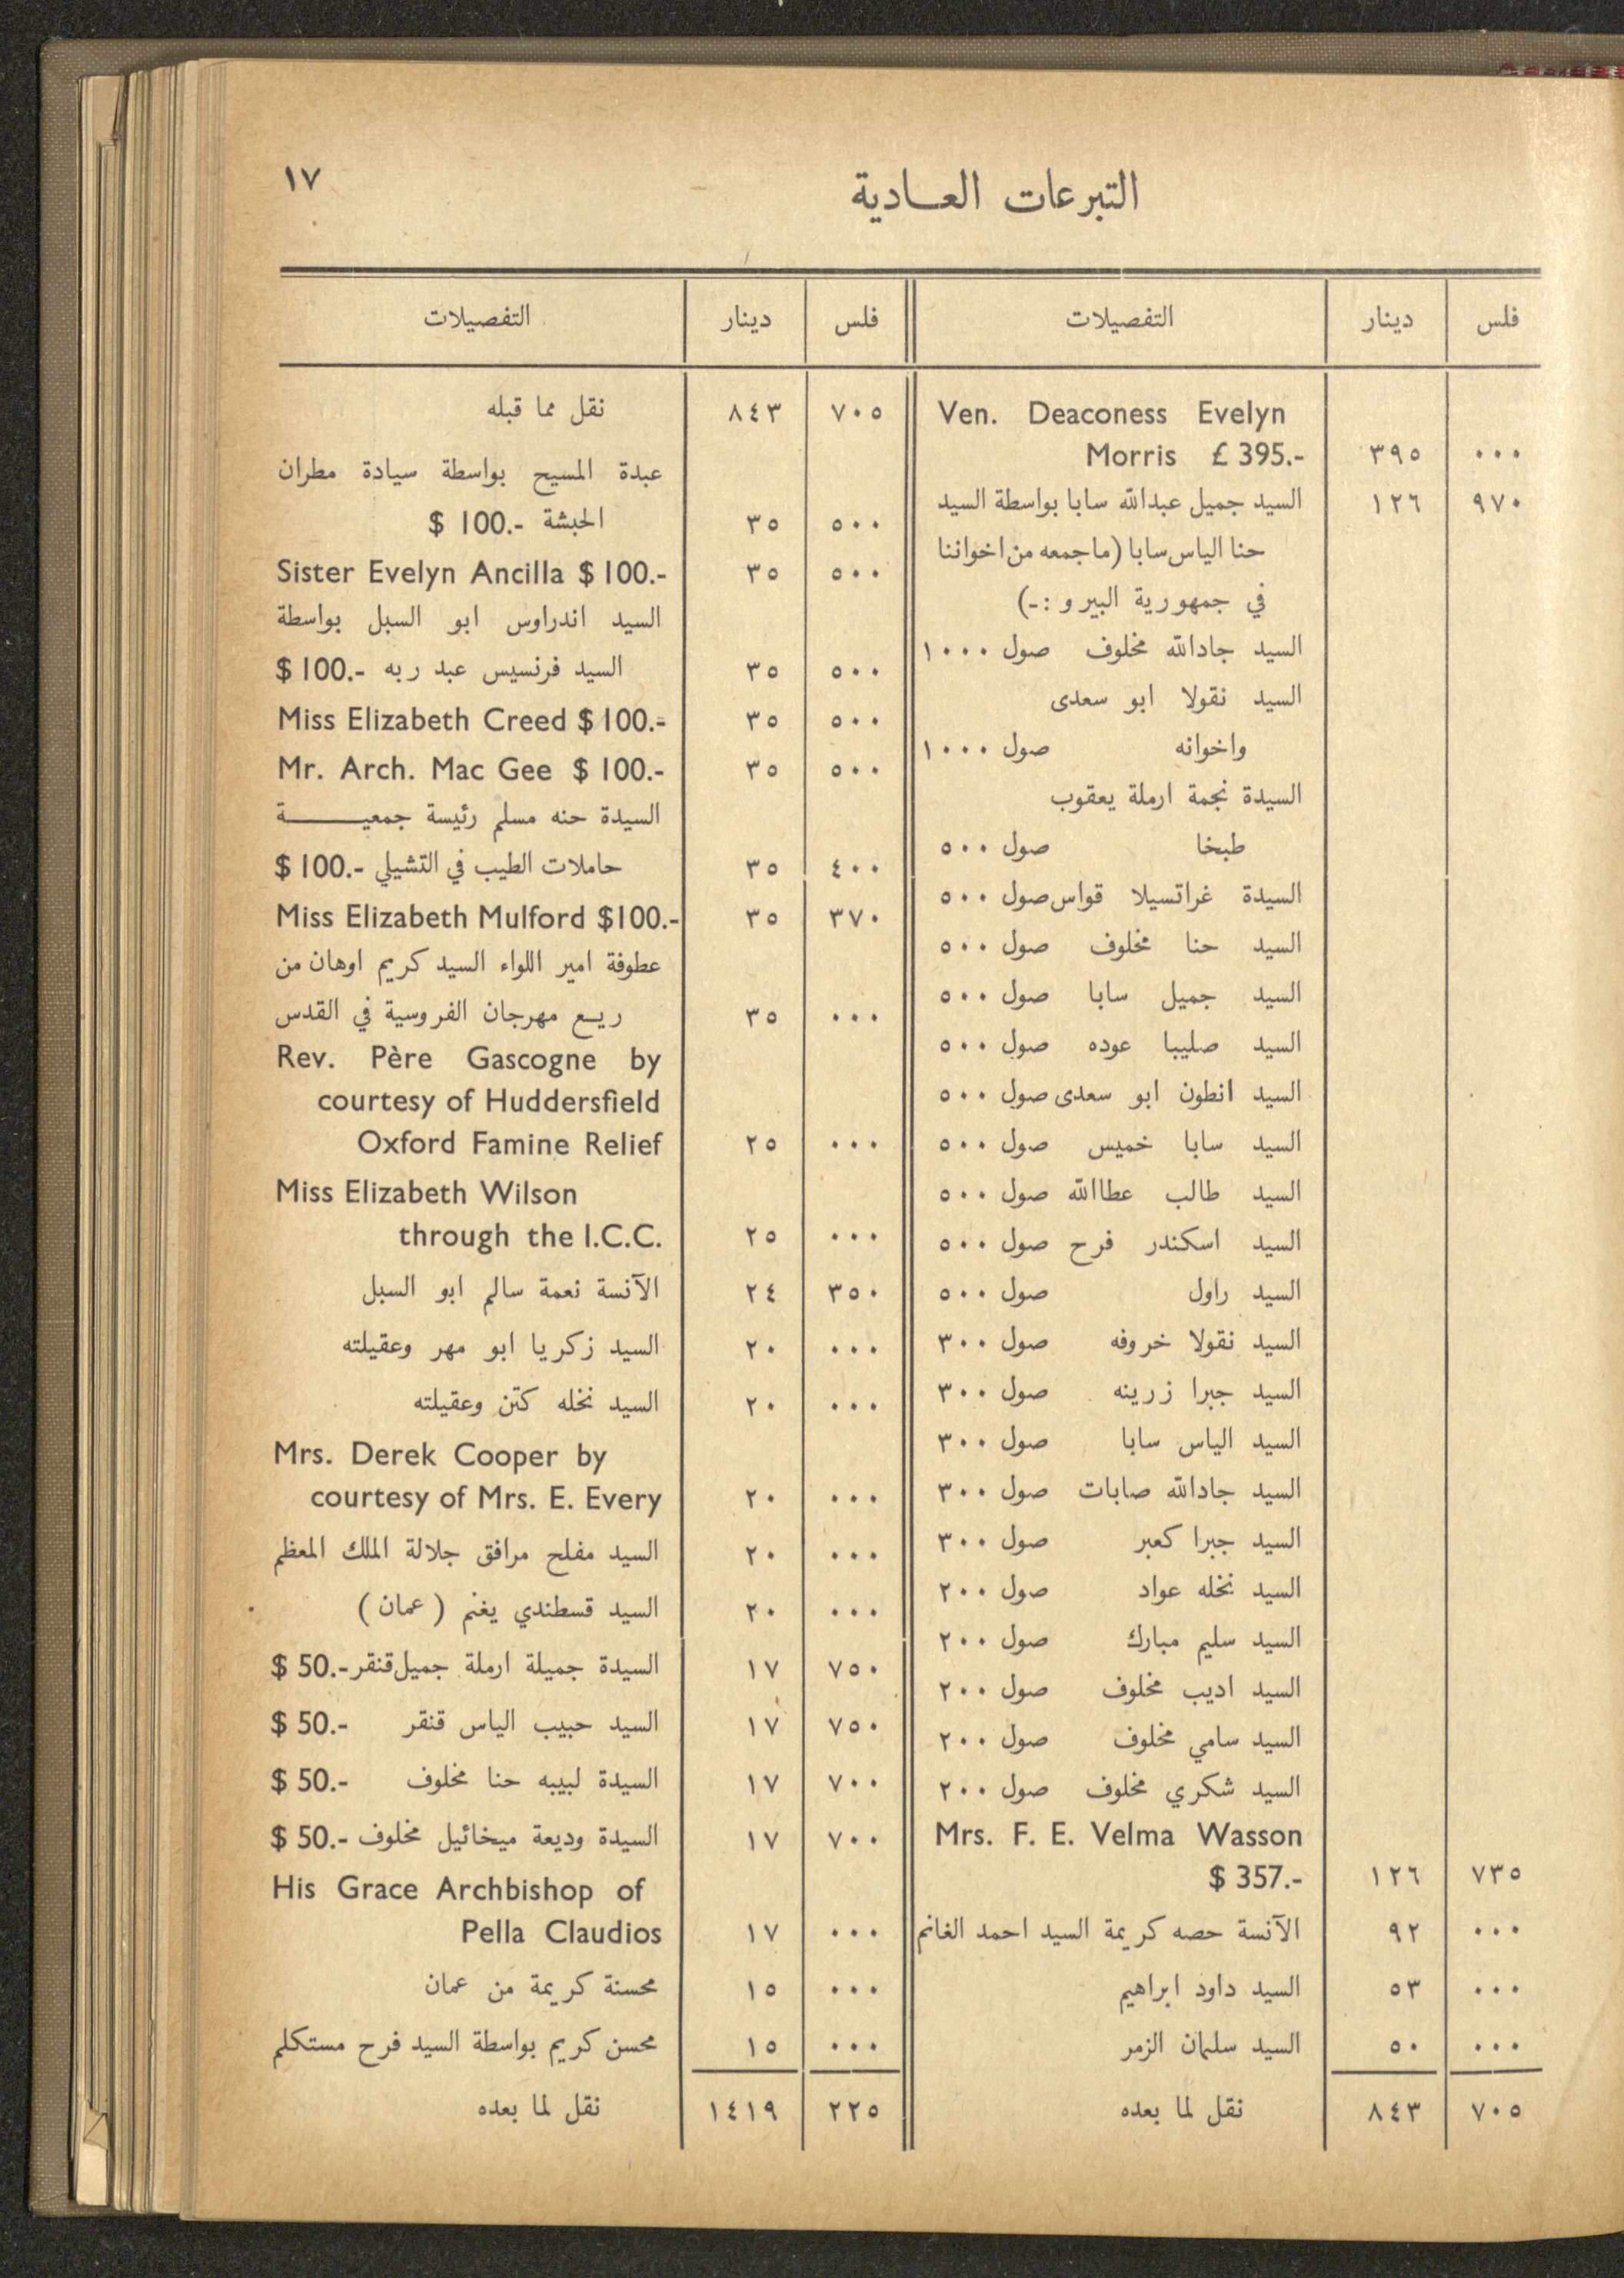 ١٧
التبرعات العـادية
فلس دينار التفصيلات
Ven. Deaconess Evelyn
٠٠٠ ٣٩٥ Morris £ 395.-
٩٧٠ ١٢٦ السيد جميل عبدالله سابا بواسطة السيد
حنا الياس سابا (ما جمعه من اخواننا
في جمهورية البيرو :ـ)
السيد جادالله مخلوف صول ١٠٠٠
السيد نقولا ابو سعدى
واخوانه صول ١٠٠٠
السيدة نجمة ارملة يعقوب
طبخا صول ٥٠٠
السيدة غراتسيلا قواس صول ٥٠٠
السيد حنا مخلوف صول ٥٠٠
السيد جميل سابا صول ٥٠٠
السيد صليبا عوده صول ٥٠٠
السيد انطون ابو سعدى صول ٥٠٠
السيد سابا خميس صول ٥٠٠
السيد طالب عطاالله صول ٥٠٠
السيد اسكندر فرح صول ٥٠٠
السيد راول صول ٥٠٠
السيد نقولا خروفه صول ٣٠٠
السيد جبرا زرينه صول ٣٠٠
السيد الياس سابا صول ٣٠٠
السيد جادالله صابات صول ٣٠٠
السيد جبرا كعبر صول ٣٠٠
السيد نخله عواد صول ٢٠٠
السيد سليم مبارك صول ٢٠٠
السيد اديب مخلوف صول ٢٠٠
السيد سامي مخلوف صول ٢٠٠
السيد شكري مخلوف صول ٢٠٠
Mrs. F. E. Velma Wasson
٧٣٥ ١٢٦ $ 357.-
٠٠٠ ٩٢ الآنسة حصه كريمة السيد احمد الغانم
٠٠٠ ٥٣ السيد داود ابراهيم
٠٠٠ ٥٠ السيد سليمان الزمر
٧٠٥ ٨٤٣ نقل لما بعده
فلس دينار التفصيلات
٧٠٥ ٨٤٣ نقل مما قبله
عبدة المسيح بواسطة سيادة مطران
٥٠٠ ٣٥ الحبشة $ 100.-
٥٠٠ ٣٥ Sister Evelyn Ancilla $ 100.-
السيد اندراوس ابو السبل بواسطة
٥٠٠ ٣٥ السيد فرنسيس عبد ربه $ 100.-
٥٠٠ ٣٥ Miss Elizabeth Creed $ 100.-
٥٠٠ ٣٥ Mr. Arch. Mac Gee $ 100.-
السيدة حنه مسلم رئيسة جمعيـــــة
٤٠٠ ٣٥ حاملات الطيب في التشيلي $ 100.-
٣٧٠ ٣٥ Miss Elizabeth Mulford $100.-
عطوفة امير اللواء السيد كريم اوهان من
٠٠٠ ٣٥ ريـع مهرجان الفروسية في القدس
Rev. Père Gascogne by
courtesy of Huddersfield
٠٠٠ ٢٥ Oxford Famine Relief
Miss Elizabeth Wilson
٠٠٠ ٢٥ through the I.C.C.
٣٥٠ ٢٤ الآنسة نعمة سالم ابو السبل
٠٠٠ ٢٠ السيد زكريا ابو مهر وعقيلته
٠٠٠ ٢٠ السيد نخله كتن وعقيلته
Mrs. Derek Cooper by
٠٠٠ ٢٠ courtesy of Mrs. E. Every
٠٠٠ ٢٠ السيد مفلح مرافق جلالة الملك المعظم
٠٠٠ ٢٠ السيد قسطندي يغنم ( عمان )
٧٥٠ ١٧ السيدة جميلة ارملة جميل قنقر $ 50.-
٧٥٠ ١٧ السيد حبيب الياس قنقر $ 50.-
٧٠٠ ١٧ السيدة لبيبه حنا مخلوف $ 50.-
٧٠٠ ١٧ السيدة وديعة ميخائيل مخلوف $ 50.-
His Grace Archbishop of
٠٠٠ ١٧ Pella Claudios
٠٠٠ ١٥ محسنة كريمة من عمان
٠٠٠ ١٥ محسن كريم بواسطة السيد فرح مستكلم
٢٢٥ ١٤١٩ نقل لما بعده